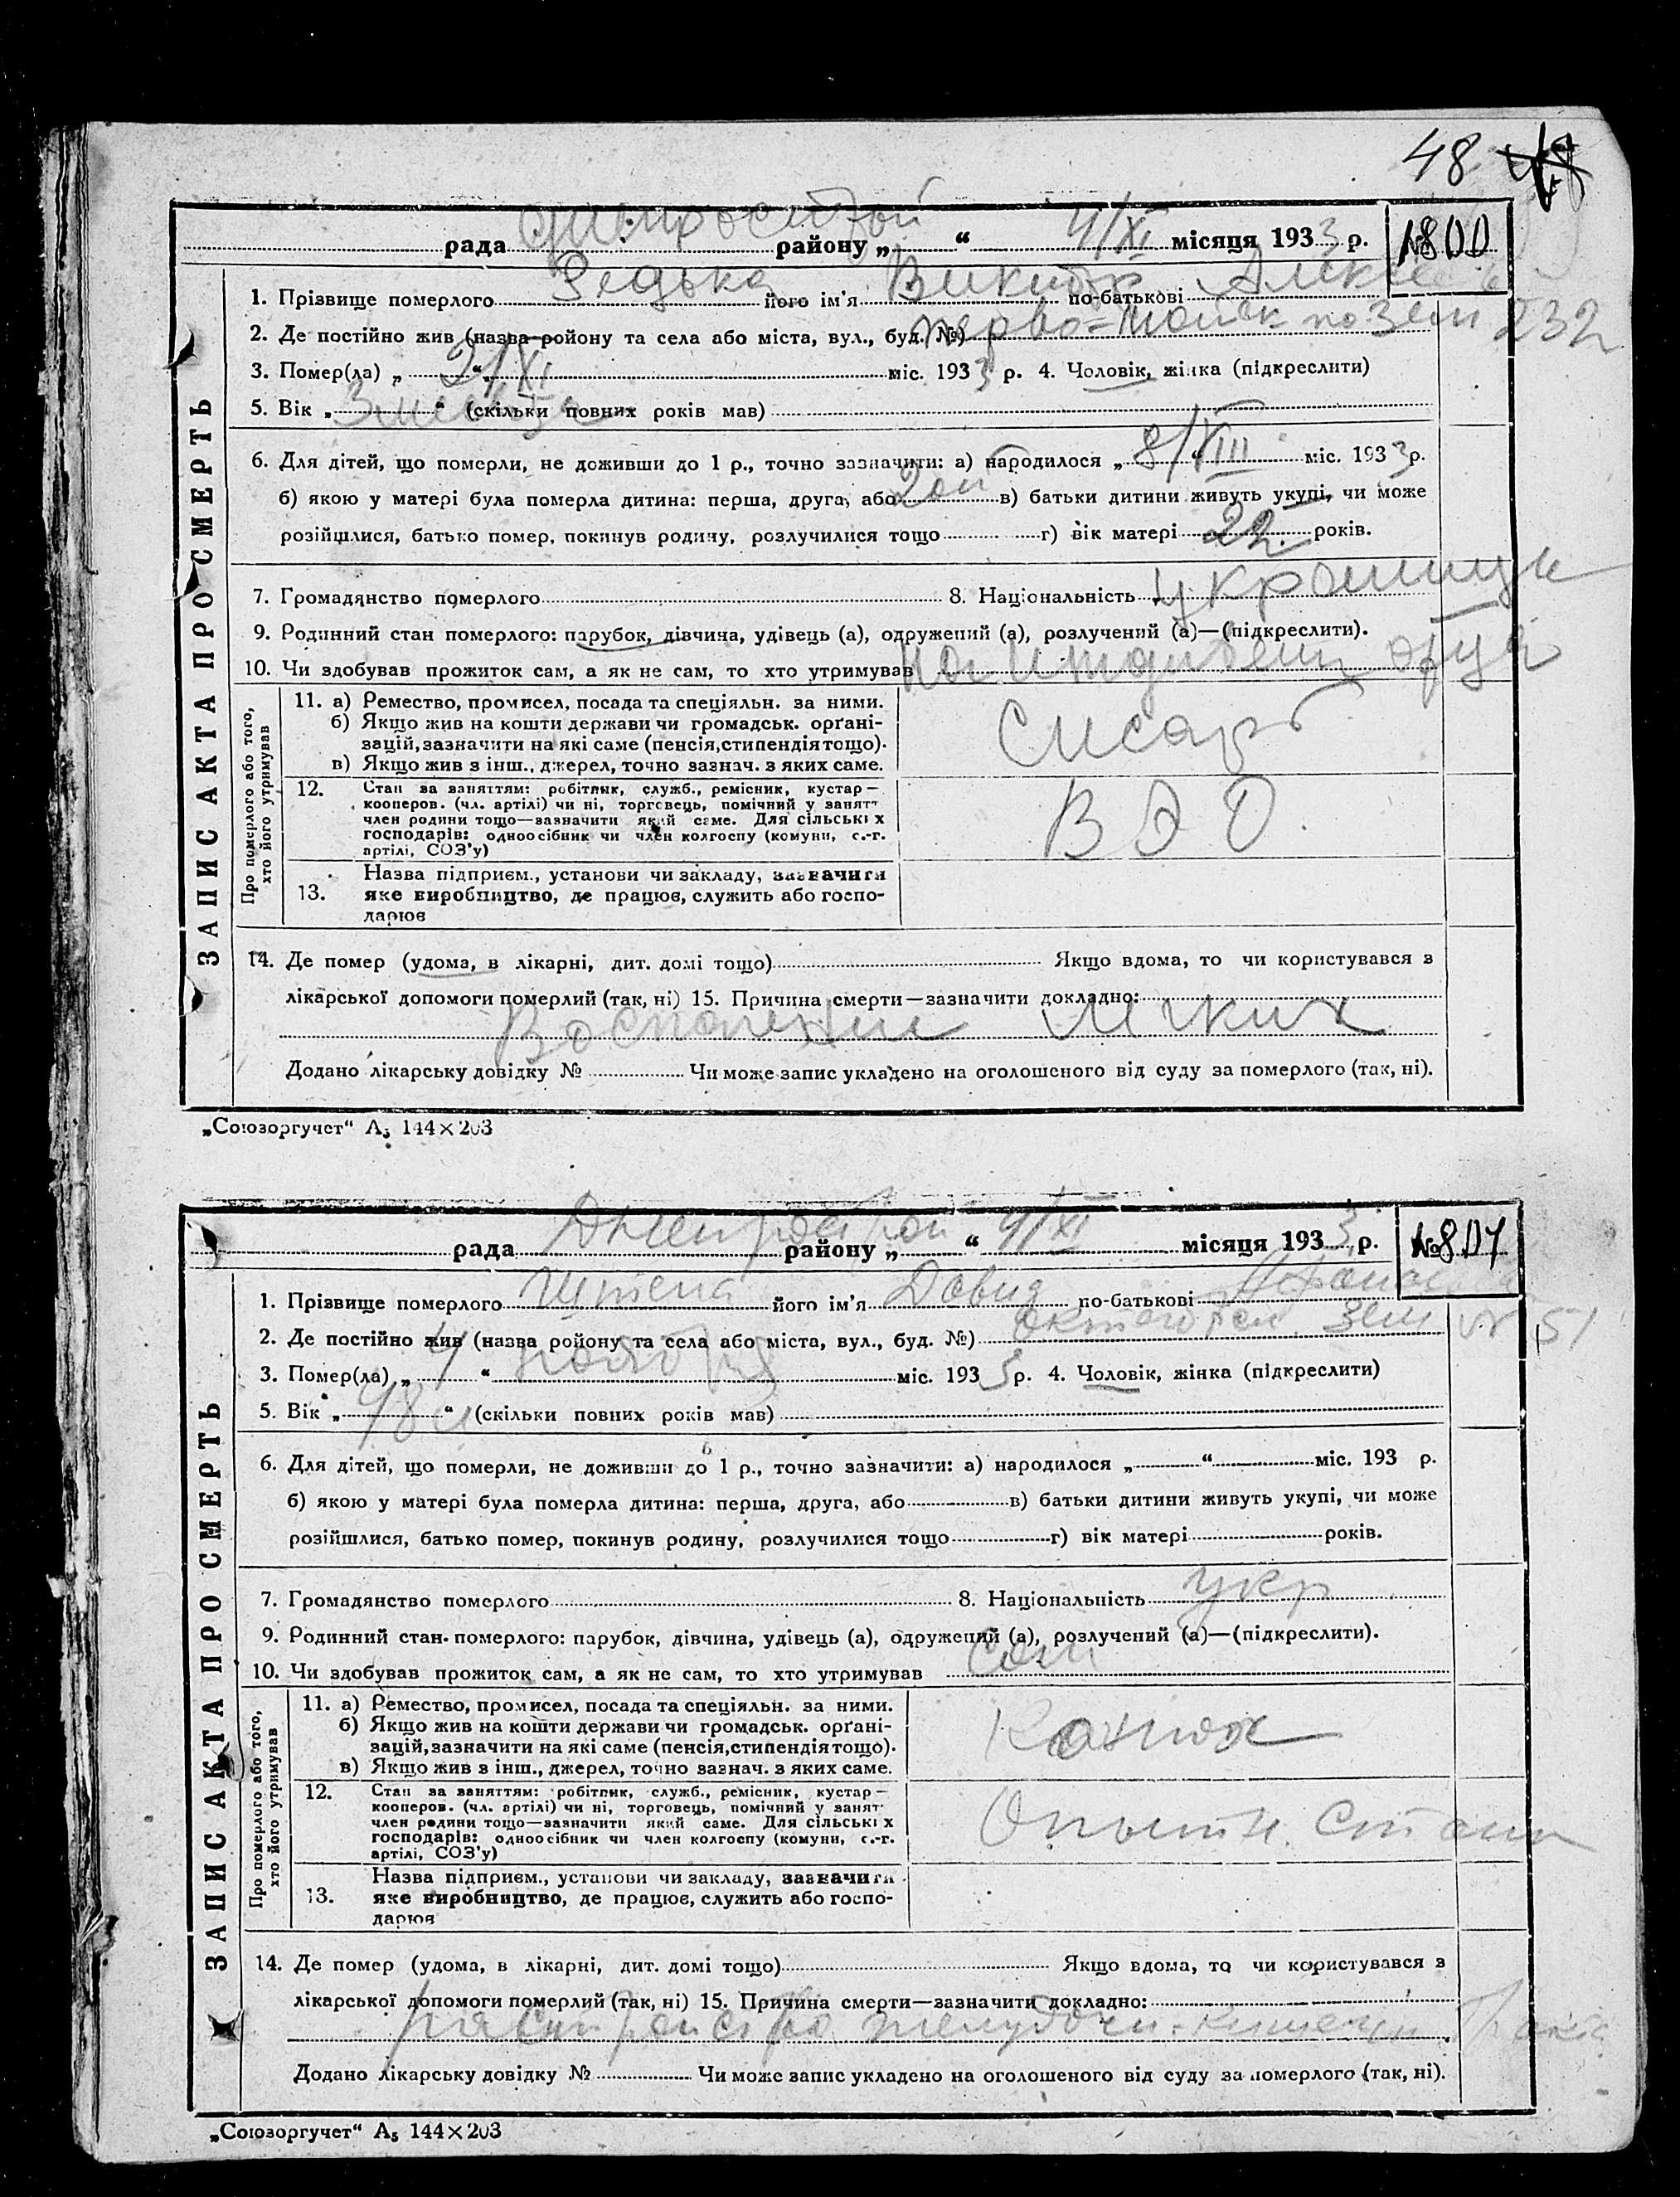 48
рада Днепрострой району „ “ 4/XI місяця 1933 р. № 800
1. Прізвище померлого Редька його ім’я Виктор по-батькові Алексе
2. Де постійно жив (назва ройону та села або міста, вул., буд. №) перво-майск по Зем 232
3. Помер(ла) „ 2/XI “ міс. 1933 р. 4. Чоловік, жінка (підкреслити)
5. Вік „ 3 месяца “ (скільки повних років мав)
6. Для дітей, що померли, не доживши до 1 р., точно зазначити: а) народилося „ 8/VIII “ міс. 1933 р.
б) якою у матері була померла дитина: перша, друга, або 2ой в) батьки дитини живуть укупі, чи може
розійшлися, батько помер, покинув родину, розлучилися тощо г) вік матері 22 років.
7. Громадянство померлого 8. Національність украинец
9. Родинний стан померлого: парубок, дівчина, удівець (а), одружений (а), розлучений (а)—(підкреслити).
10. Чи здобував прожиток сам, а як не сам, то хто утримував на иждивении отца
ЗАПИС АКТА ПРО СМЕРТЬ
Про померлого або того, хто його утримував
11. а) Ремество, промисел, посада та спеціяльн. за ними.
б) Якщо жив на кошти держави чи громадськ. орґані-
зацій, зазначити на які саме (пенсія, стипендія тощо).
в) Якщо жив з інш., джерел, точно зазнач. з яких саме.
Слесарь
12. Стан за заняттям: робітник, служб., ремісник, кустар—
кооперов. (чл. артілі) чи ні, торговець, помічний у занятт
член родини тощо—зазначити який саме. Для сільськіх
господарів: одноосібник чи член колгоспу (комуни, с.-г.
артілі, СОЗ’у)
В Э О.
13. Назва підприєм., установи чи закладу, зазначити
яке виробництво, де працює, служить або госпо-
дарює
14. Де помер (удома, в лікарні, дит. домі тощо) Якщо вдома, то чи користувався з
лікарської допомоги померлий (так, ні) 15. Причина смерти—зазначити докладно:
Воспаление легких
Додано лікарську довідку № Чи може запис укладено на оголошеного від суду за померлого (так, ні).
„Союзоргучет“ А5 144×203
рада Днепрострой району „ “ 4/XI місяця 1933 р. №807
1. Прізвище померлого Штепа його ім’я Давид по-батькові
2. Де постійно жив (назва ройону та села або міста, вул., буд. №) Зем № 51
3. Помер(ла) „ 4 “ ноября міс. 1933 р. 4. Чоловік, жінка (підкреслити)
5. Вік „ 48 л “ (скільки повних років мав)
6. Для дітей, що померли, не доживши до 1 р., точно зазначити: а) народилося „ “ міс. 193 р.
б) якою у матері була померла дитина: перша, друга, або в) батьки дитини живуть укупі, чи може
розійшлися, батько помер, покинув родину, розлучилися тощо г) вік матері років.
7. Громадянство померлого 8. Національність укр
9. Родинний стан померлого: парубок, дівчина, удівець (а), одружений (а), розлучений (а)—(підкреслити).
10. Чи здобував прожиток сам, а як не сам, то хто утримував Сам
ЗАПИС АКТА ПРО СМЕРТЬ
Про померлого або того, хто його утримував
11. а) Ремество, промисел, посада та спеціяльн. за ними.
б) Якщо жив на кошти держави чи громадськ. орґані-
зацій, зазначити на які саме (пенсія, стипендія тощо).
в) Якщо жив з інш., джерел, точно зазнач. з яких саме.
Конюх
12. Стан за заняттям: робітник, служб., ремісник, кустар—
кооперов. (чл. артілі) чи ні, торговець, помічний у занят
член родини тощо—зазначити який саме. Для сільськіх
господарів: одноосібник чи член колгоспу (комуни, с.-г.
артілі, СОЗ’у)
Опытн. Станц
13. Назва підприєм., установи чи закладу, зазначити
яке виробництво, де працює, служить або госпо-
дарює
14. Де помер (удома, в лікарні, дит. домі тощо) Якщо вдома, то чи користувався з
лікарської допомоги померлий (так, ні) 15. Причина смерти—зазначити докладно:
расстройство желудочн-кишечн тракта
Додано лікарську довідку № Чи може запис укладено на оголошеного від суду за померлого (так, ні).
„Союзоргучет“ А5 144×203